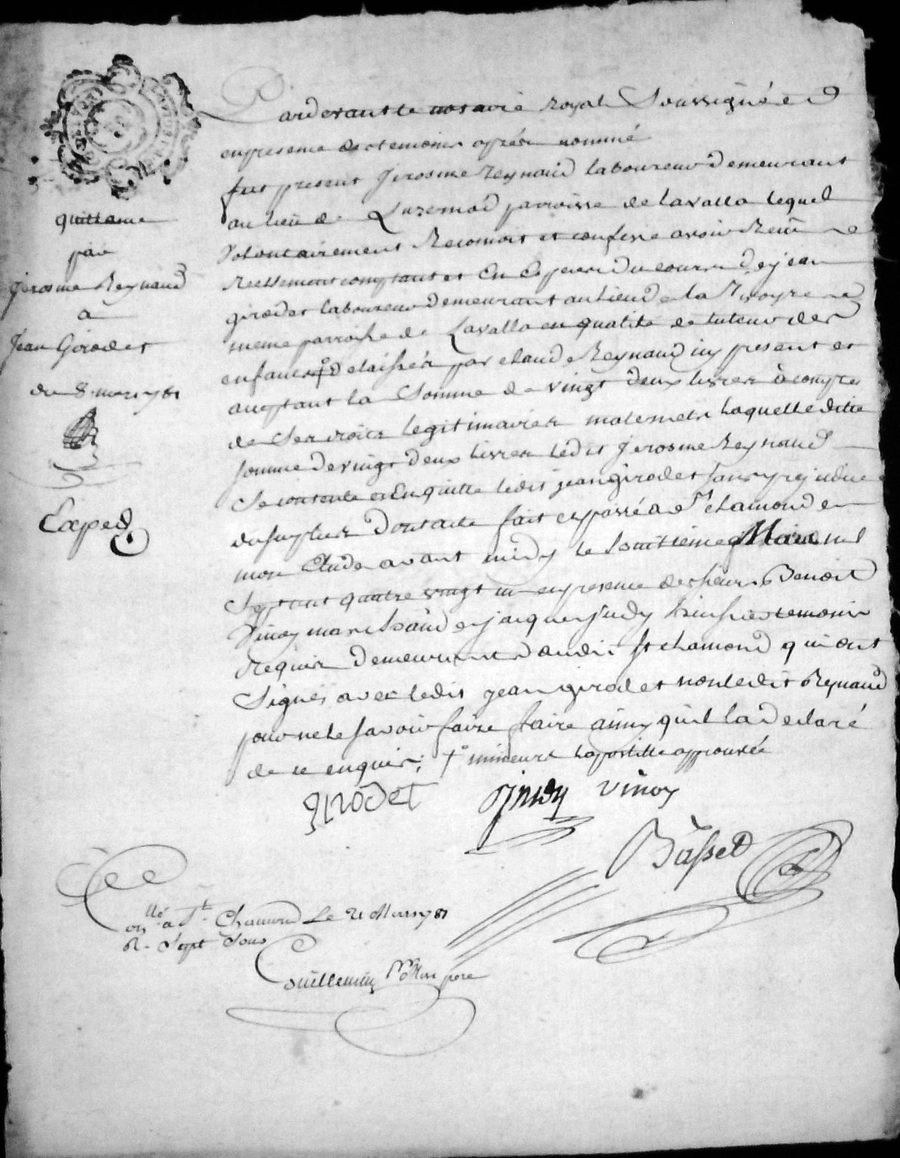 Pardevant le notaire Royal Soussigné et
en presence des temoins après nommé
fut present Jerosme Reynaud laboureur demeurant
au lieu de Luzernod parroisse de Lavalla lequel
Volontairement Reconnoit et confesse avoir Reçu
Reellement comptant et En Especes du cours de jean
girodet laboureur demeurant au lieu de la
meme parroisse de Lavalla en qualité de tuteur des
enfants † delaissés par claude Reynaud icy present et
acceptant la Somme de vingt deux livres à compte
de Ses droits legitimaires maternels laquelle ditte
somme de vingt deux livres ledit Jerosme Reynaud
Se contente et En quitte ledit jean girodet sans prejudice
du surplus Dont acte fait et passé a St chamond en
mon Etude avant midy le huitieme Mars mil
Sept cent quatre vingt un en presence de sieurs Benoit
Vinoy marchand et jacques judy temoins
Requis demeurant audit St chamond qui ont
Signés avec ledit jean girodet non ledit Reynaud
pour ne le savoir faire ainsy qu'il la declaré
de ce enquis; † mineurs lapostille approuvée
girodet judy vinoy
Basset
quittance
par
Jerosme Reynaud
à
Jean Girodet
du 8 mars 1781
Exped
à St. Chamond Le 21 Mars 1781
R. Sept Sous
Guillemin